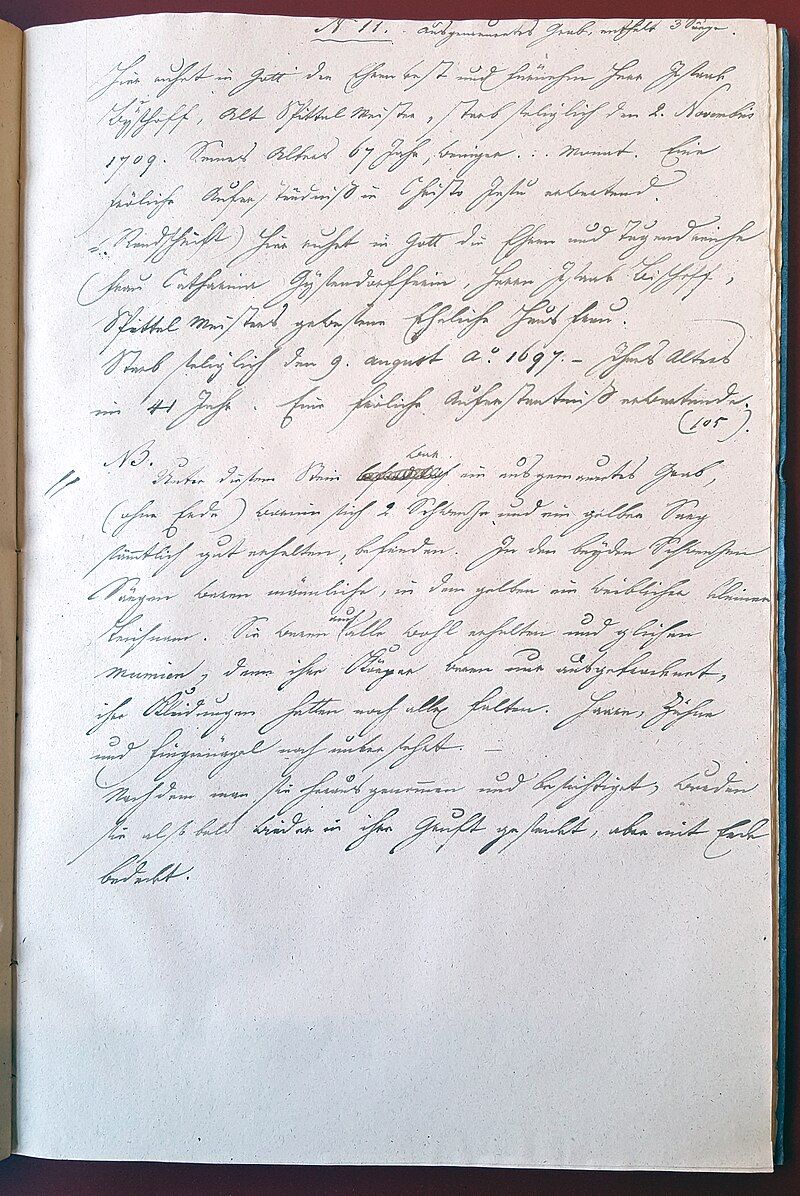 N° 11. Ausgemauertes Grab, enthält 3 Särge.
Hier ruhet in Gott der Ehrenvest und fürnehm Herr Isaak
Byschoff, Alt Spittel Meister, starb seliglich den 2. Novembris
1709. Seines Alters 67 Jahr, weniger ... Monat. Eine
fröliche Auferständniß in Christo Jesu erwartend.
Randschrift) Hier ruhet in Gott die Ehren und Tugendreiche
Frau Catharina Gysendörfferin, Herrn Isaak Bischoff,
Spittel Meisters gewesene Eheliche Hausfrau.
Starb seliglich den 9. august A° 1697. – Ihres Alters
im 41 Jahr. Eine fröliche Auferstantniß erwartende.
(105).
NB.
war
Unter diesem Stein ein ausgemauertes Grab,
(ohne Erde) worin sich 2 Schwarze und ein gelber Sarg
sämtlich gut erhalten, befanden. In den beyden Schwarzen
Särgen waren männliche, in dem gelben ein weiblicher kleiner
Leichnam. Sie waren auch alle wohl erhalten und glichen
Mumien, denn ihre Körper waren nur ausgetrocknet,
ihre Kleidungen hatten noch alle Falten. Haare, Zähne
und Fingernägel noch unversehrt. –
Nachdem man sie herausgenommen und besichtiget, wurden
sie alsbald wieder in ihre Gruft gesenkt, aber mit Erde
bedeckt.